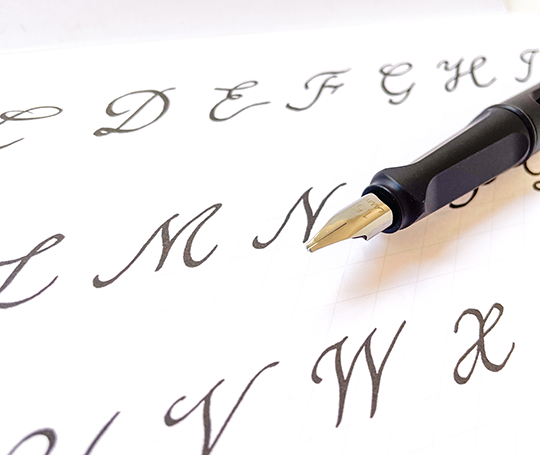 C D E F G H I
L M N
U V W X